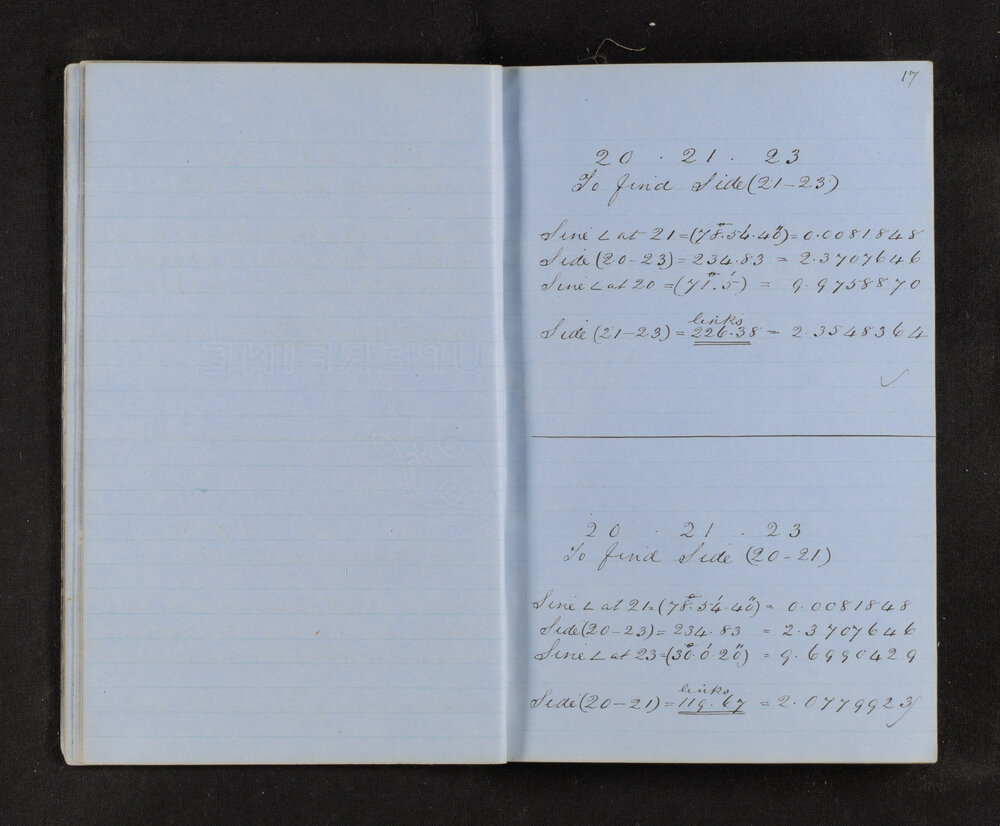 17
20 . 21 . 23
To find Side (21-23)
Sine ∠ at 21 = (78°.54'.40") = 0.0081848
Side (20-23) = 234.83 = 2.3707646
Sine ∠ at 20 = (71°.5') = 9.9758870
links
Side (21-23) = 226.38 = 2.3548364
20 . 21 . 23
To find Side (20-21)
Sine ∠ at 21 = (78°.54'.40") = 0.0081848
Side (20-23) = 234.83 = 2.3707646
Sine ∠ at 23 = (30°.0'.20") = 9.6990429
links
Side (20-21) = 119.67 = 2.0779923